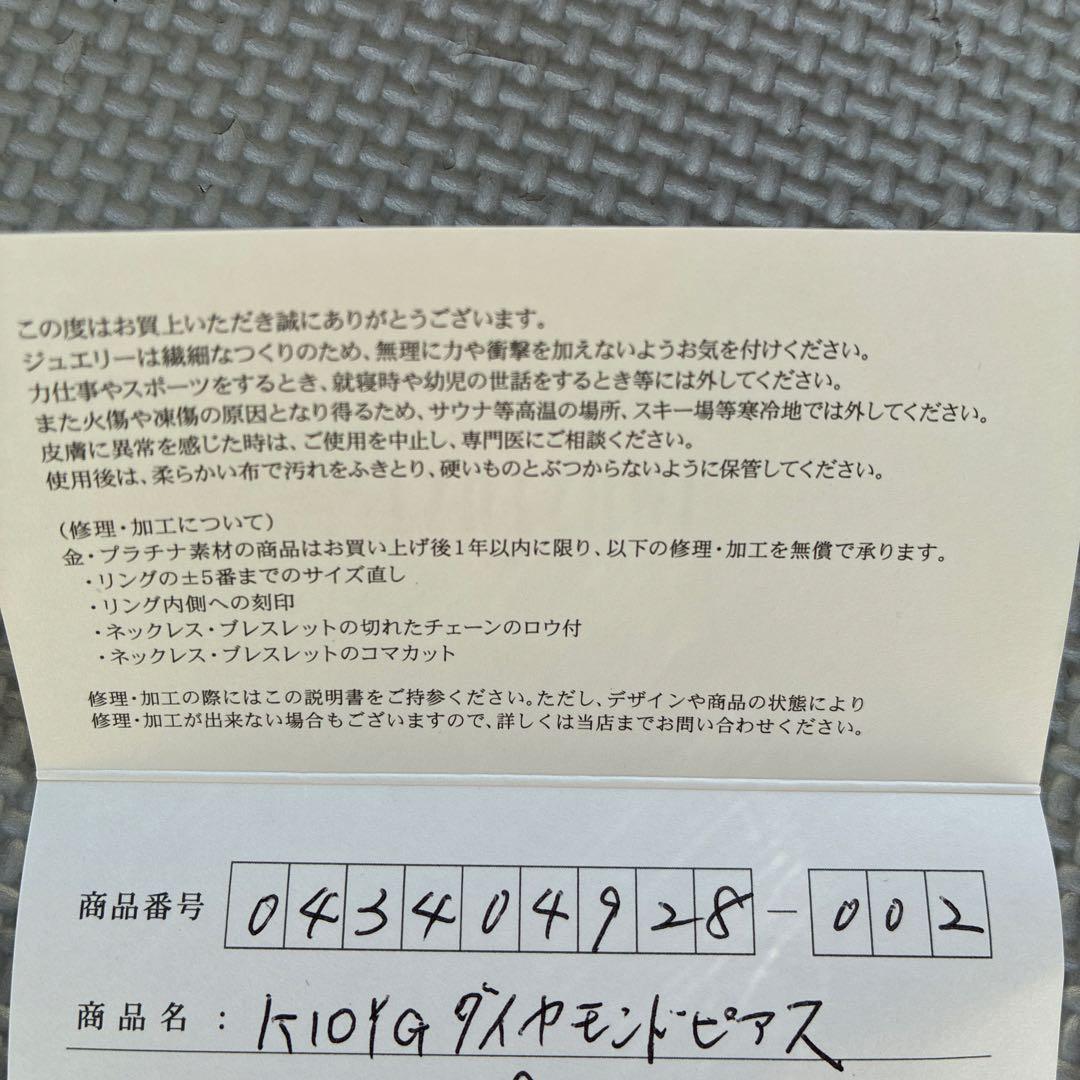 この度はお買上いただき誠にありがとうございます。
ジュエリーは繊細なつくりのため、無理に力や衝撃を加えないようお気を付けください。
力仕事やスポーツをするとき、就寝時や幼児の世話をするとき等には外してください。
また火傷や凍傷の原因となり得るため、サウナ等高温の場所、スキー場等寒冷地では外してください。
皮膚に異常を感じた時は、ご使用を中止し、専門医にご相談ください。
使用後は、柔らかい布で汚れをふきとり、硬いものとぶつからないように保管してください。
(修理・加工について)
金・プラチナ素材の商品はお買い上げ後1年以内に限り、以下の修理・加工を無償で承ります。
・リングの±5番までのサイズ直し
・リング内側への刻印
・ネックレス・ブレスレットの切れたチェーンのロウ付
・ネックレス・ブレスレットのコマカット
修理・加工の際にはこの説明書をご持参ください。ただし、デザインや商品の状態により
修理・加工が出来ない場合もございますので、詳しくは当店までお問い合わせください。
商品番号 043404928-002
商品名 : K10YGダイヤモンドピアス